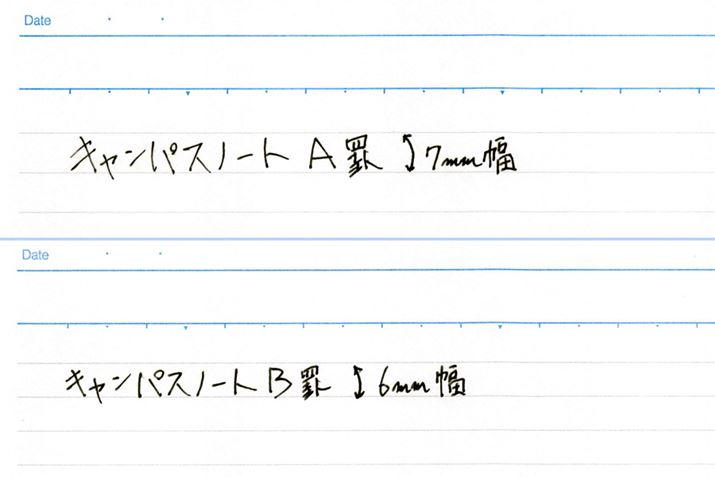 Date
キャンパスノート A罫 ↕7mm幅
Date
キャンパスノート B罫 ↕6mm幅